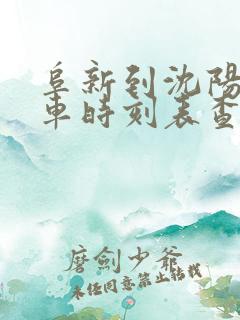 阜新到沈阳
车时刻表查
磨剑少爷
未经同意禁止转载